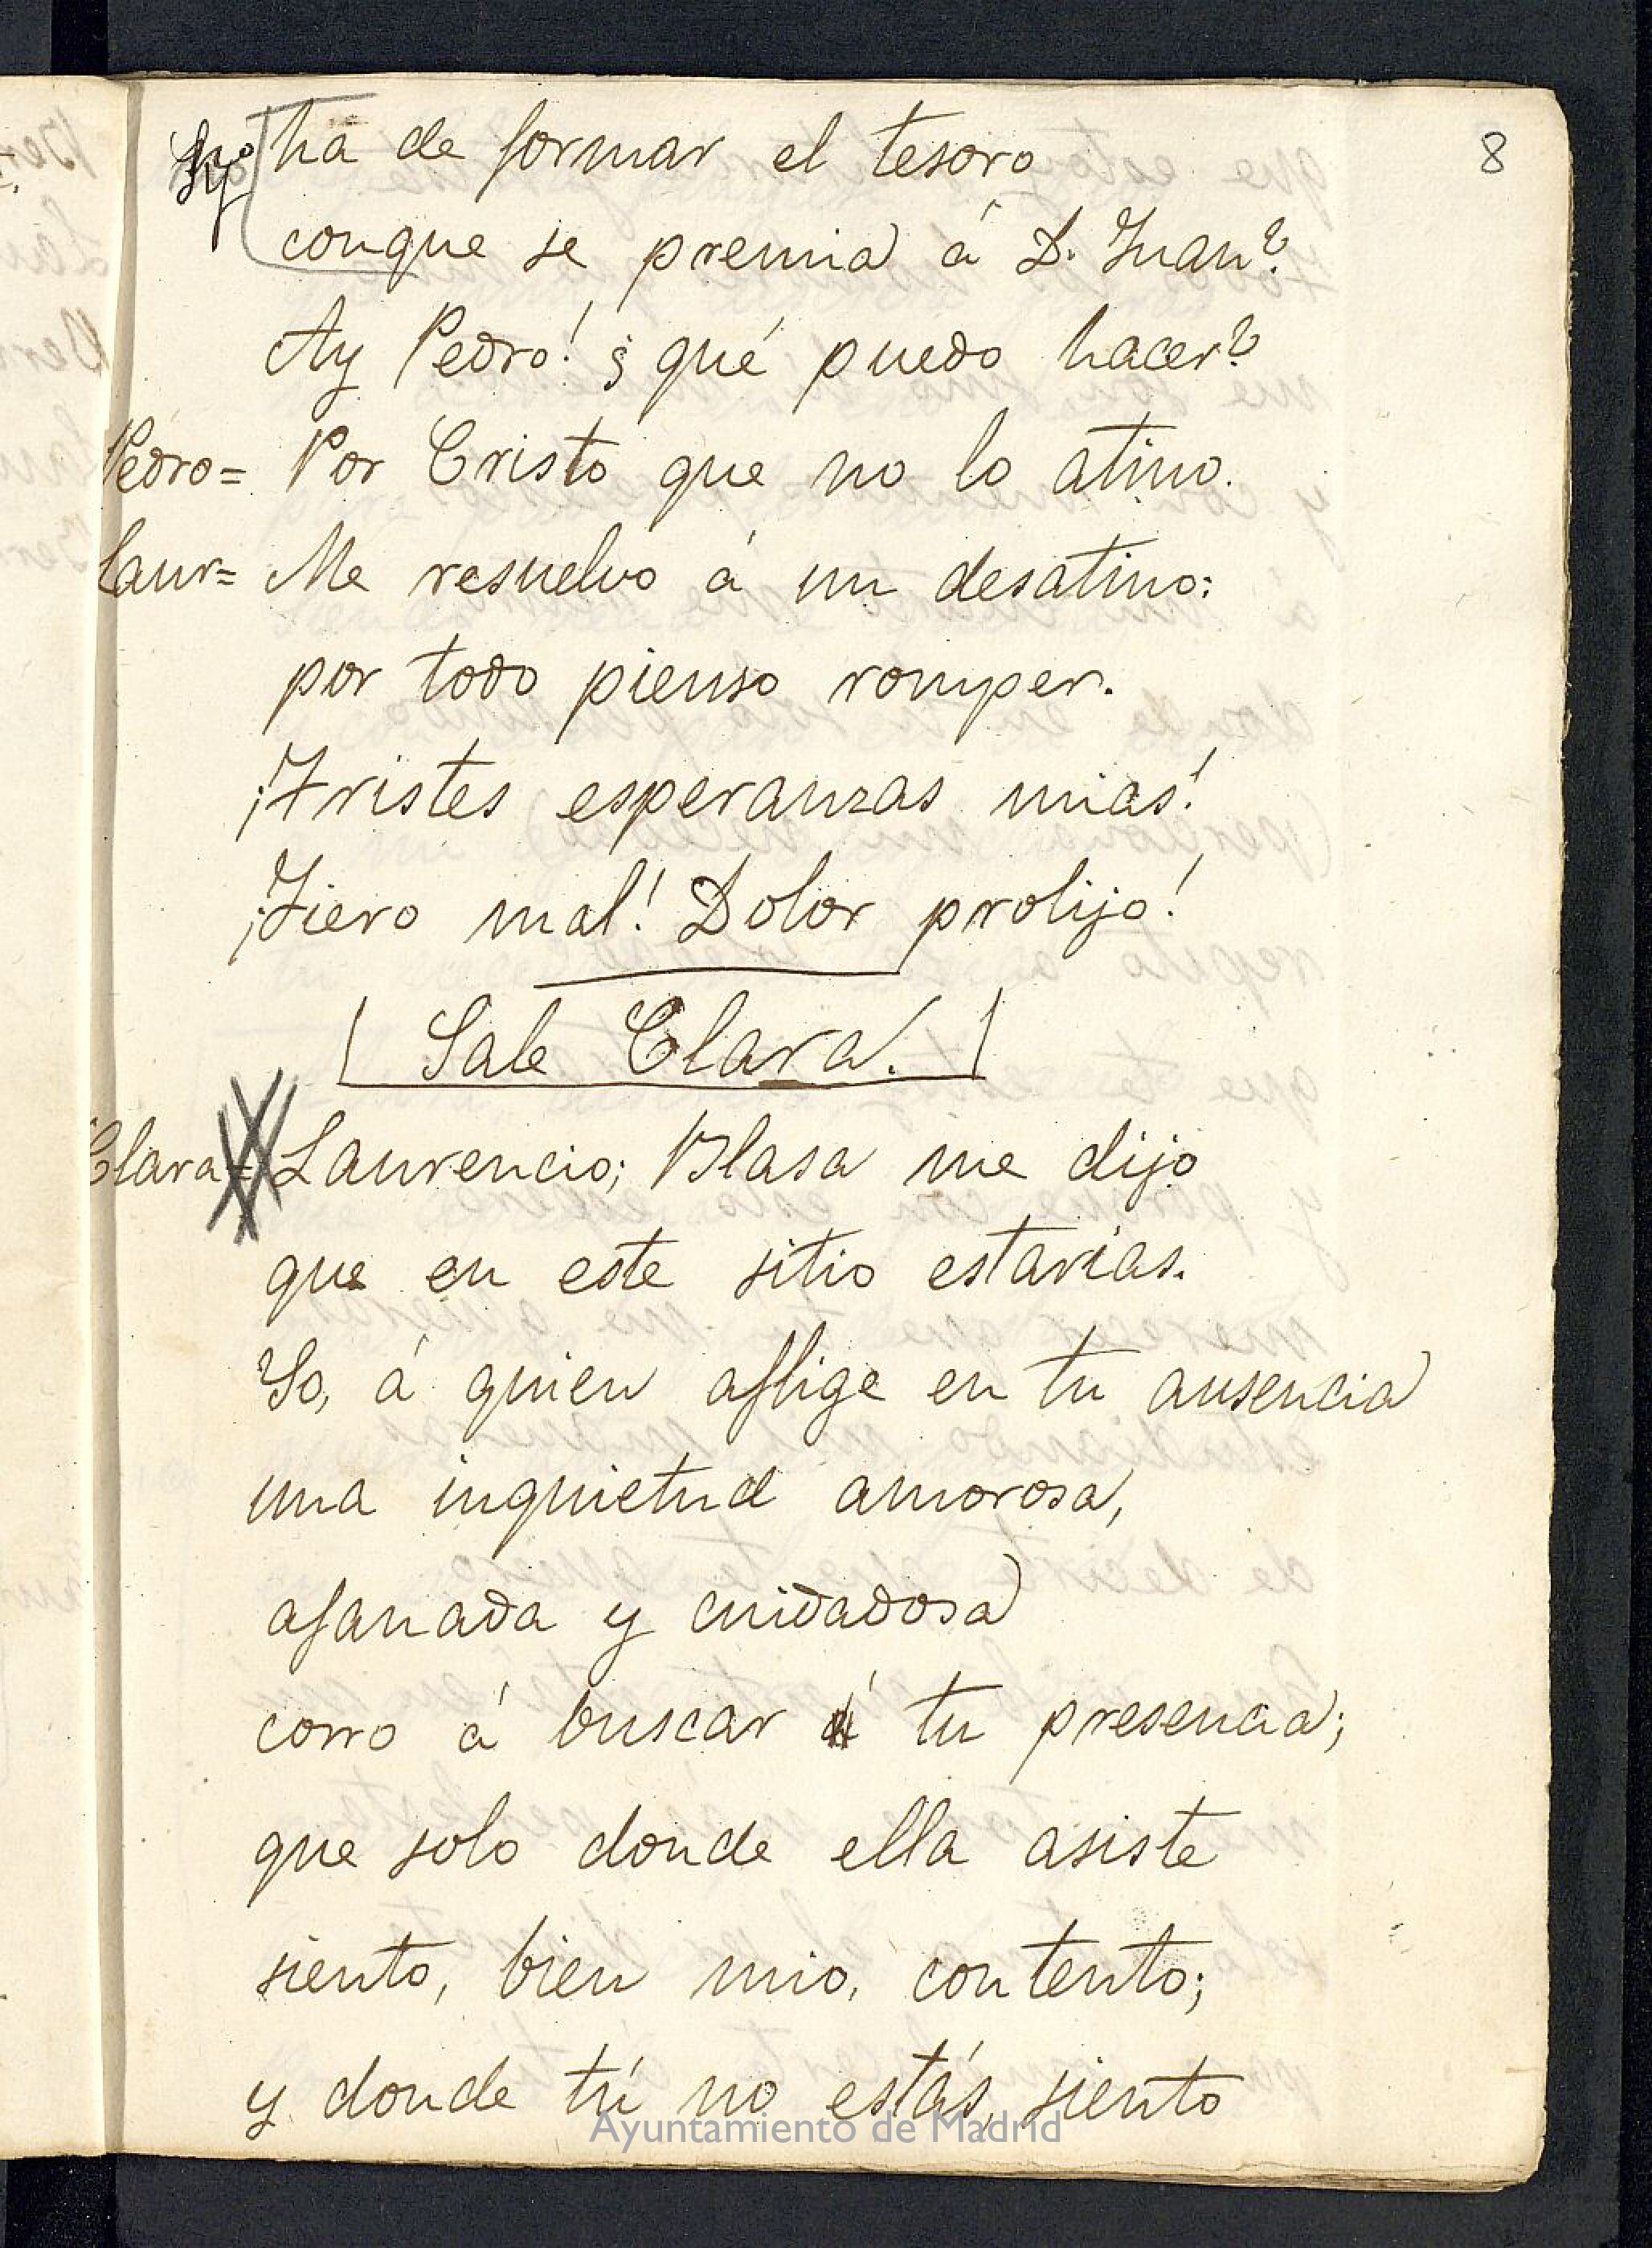 8
ha de formar el tesoro
conque se premia á D. Juan?
Ay Pedro! ¿qué puedo hacer?
Pedro= Por Cristo que no lo atino.
Laur= Me resuelvo á un desatino:
por todo pienso romper.
¡Tristes esperanzas mias!
¡Fiero mal! Dolor prolijo!
Sale Clara.
Clara= Laurencio; Blasa me dijo
que en este sitio estarías.
Yo, á quien aflige en tu ausencia
una inquietud amorosa,
afanada y cuidadosa
corro á buscar á tu presencia;
que solo donde ella asiste
siento, bien mio, contento;
y donde tú no estás, siento
Ayuntamiento de Madrid